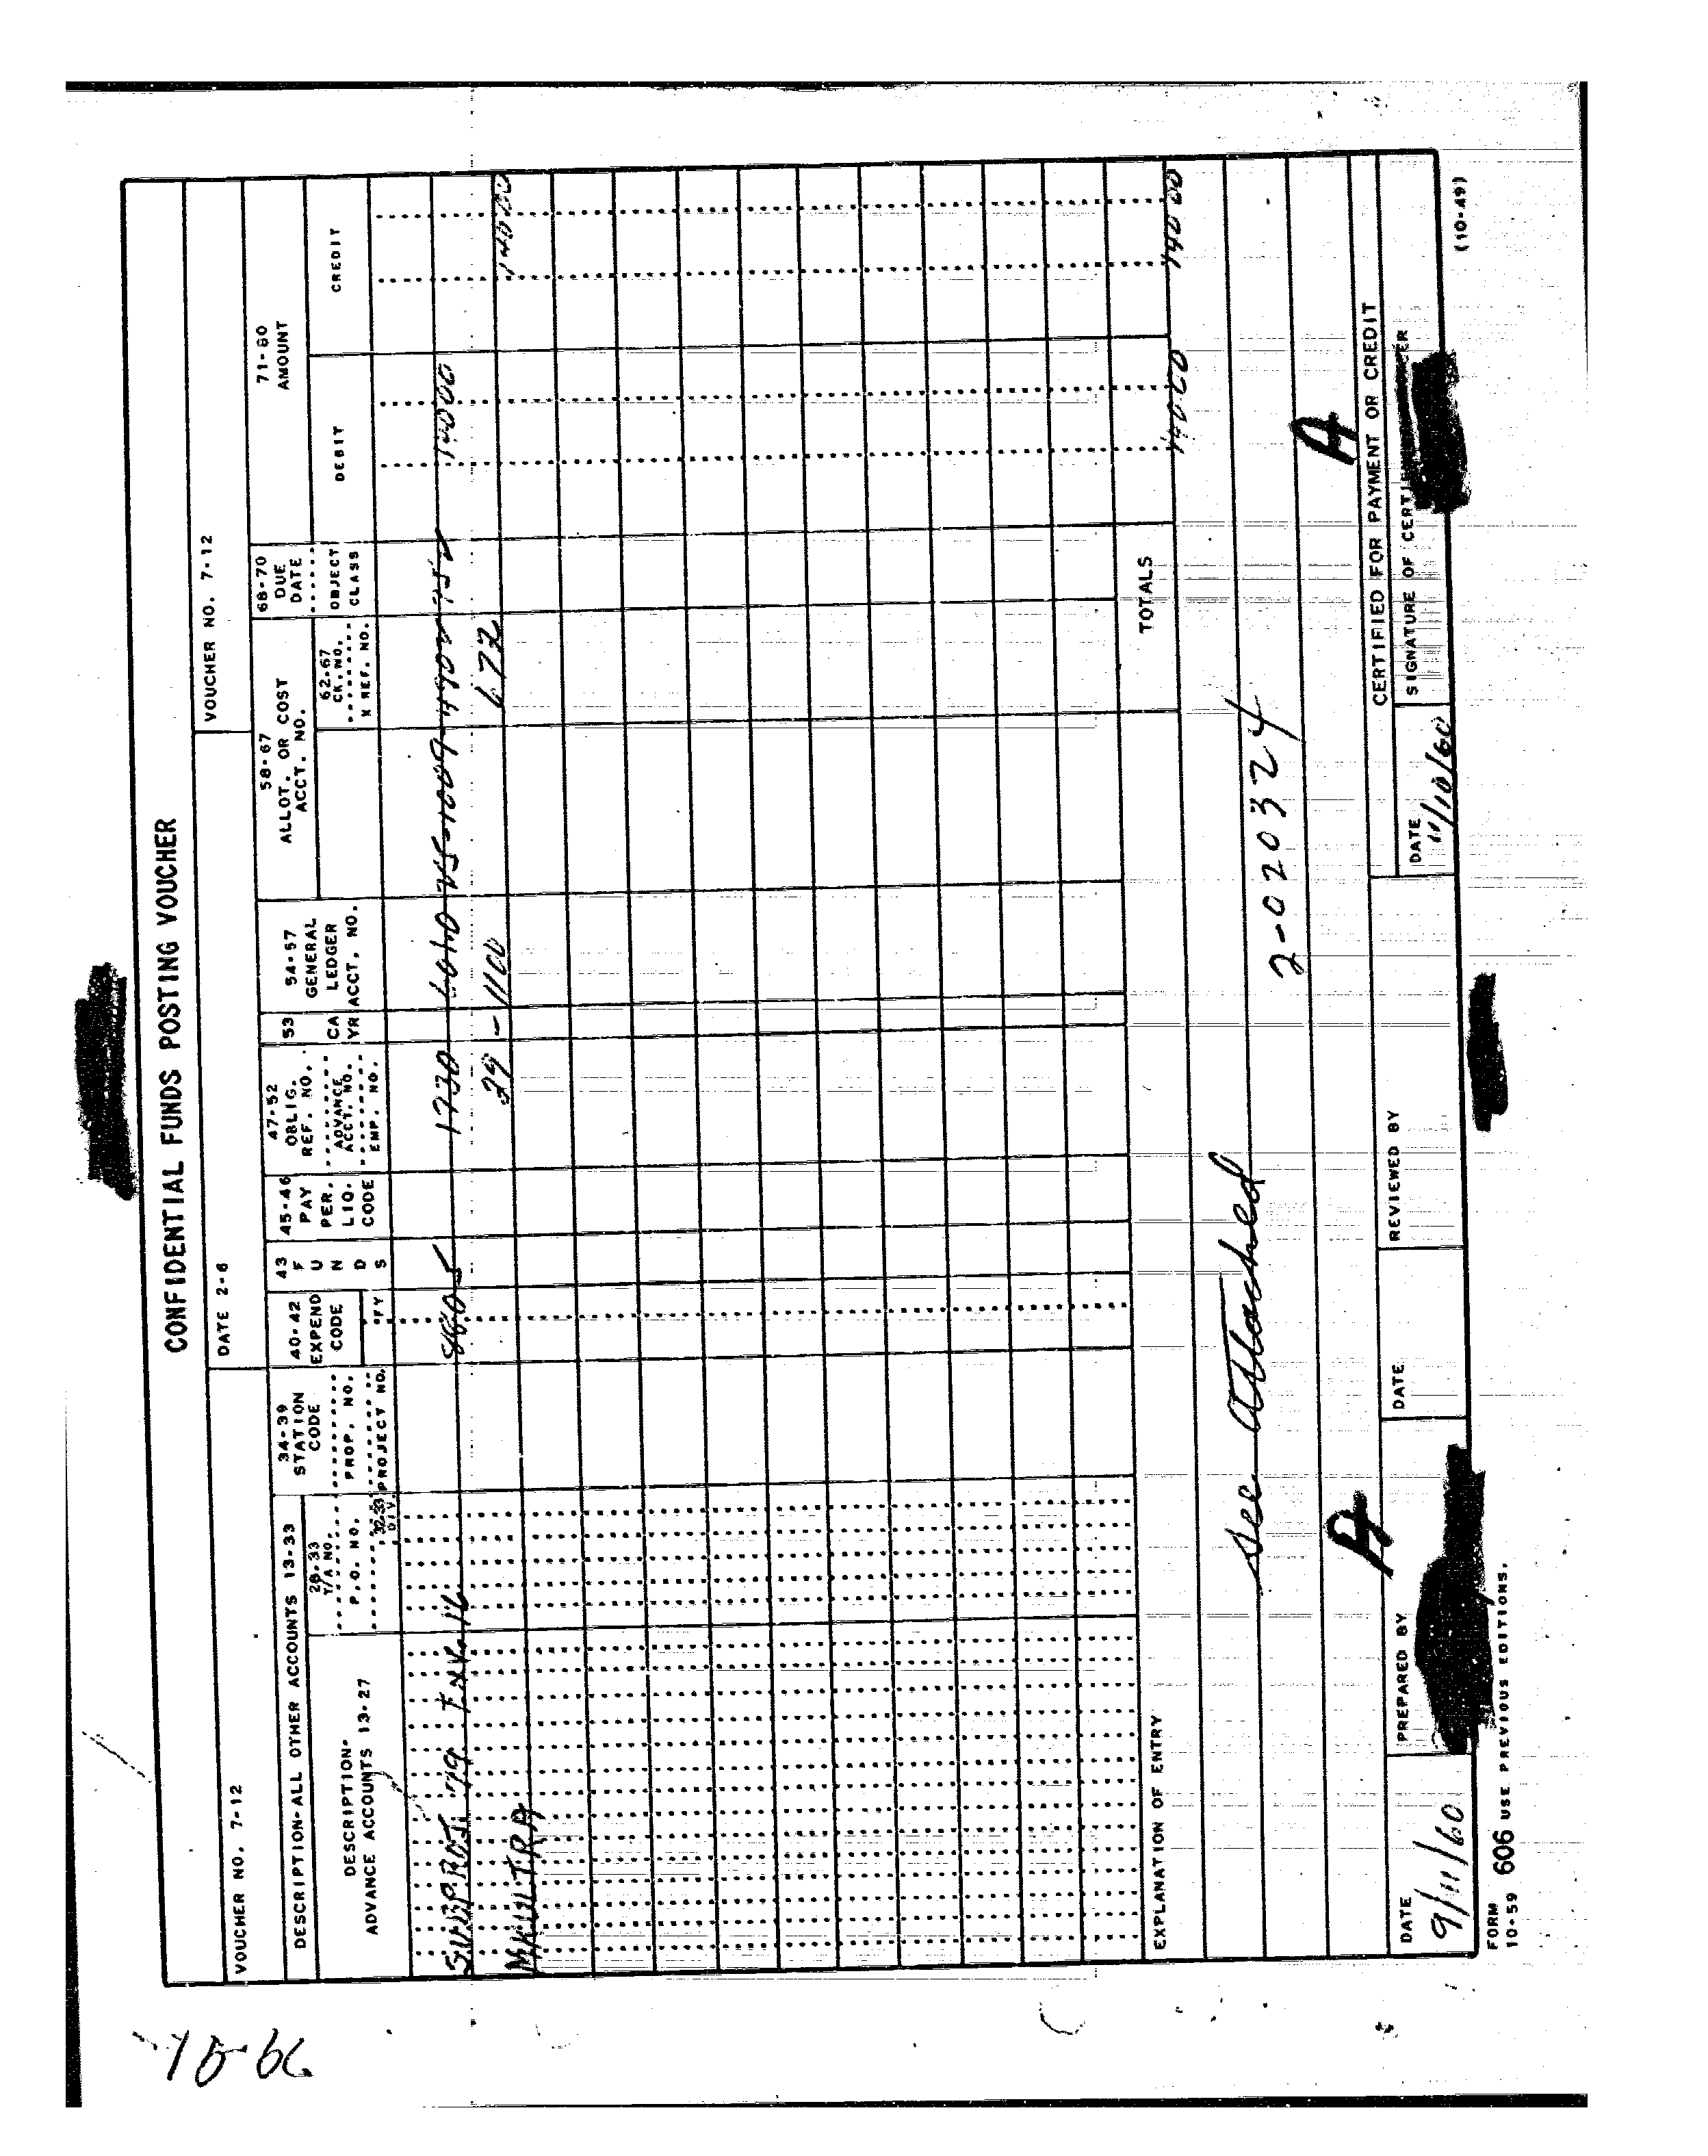 CONFIDENTIAL FUNDS POSTING VOUCHER
VOUCHER NO. 7-12
DATE 2-6
VOUCHER NO. 7-12
DESCRIPTION-ALL OTHER ACCOUNTS 13-33
DESCRIPTION-
ADVANCE ACCOUNTS 13-27
28-33
T/A NO.
P.O. NO.
32-33
DIV.
34-39
STATION
CODE
PROP. NO.
PROJECT NO.
40-42
EXPEND
CODE
FY
43
F
U
N
D
S
45-46
PAY
PER.
LIQ.
CODE
47-52
OBLIG.
REF. NO.
ADVANCE
ACCT. NO.
EMP. NO.
53
CA
YR
54-57
GENERAL
LEDGER
ACCT. NO.
58-67
ALLOT. OR COST
ACCT. NO.
62-67
CK. NO.
X REF. NO.
68-70
DUE
DATE
OBJECT
CLASS
71-80
AMOUNT
DEBIT
CREDIT
SUBPROJ 79 INV.16 1730
MKULTRA 29 - 1100 1672 140 00
TOTALS 140 00
EXPLANATION OF ENTRY
See Attached
2-020324
A
A
DATE
9/11/60
PREPARED BY
DATE
REVIEWED BY
CERTIFIED FOR PAYMENT OR CREDIT
DATE
11/10/60
SIGNATURE OF
FORM
10-59 606 USE PREVIOUS EDITIONS.
(10-49)